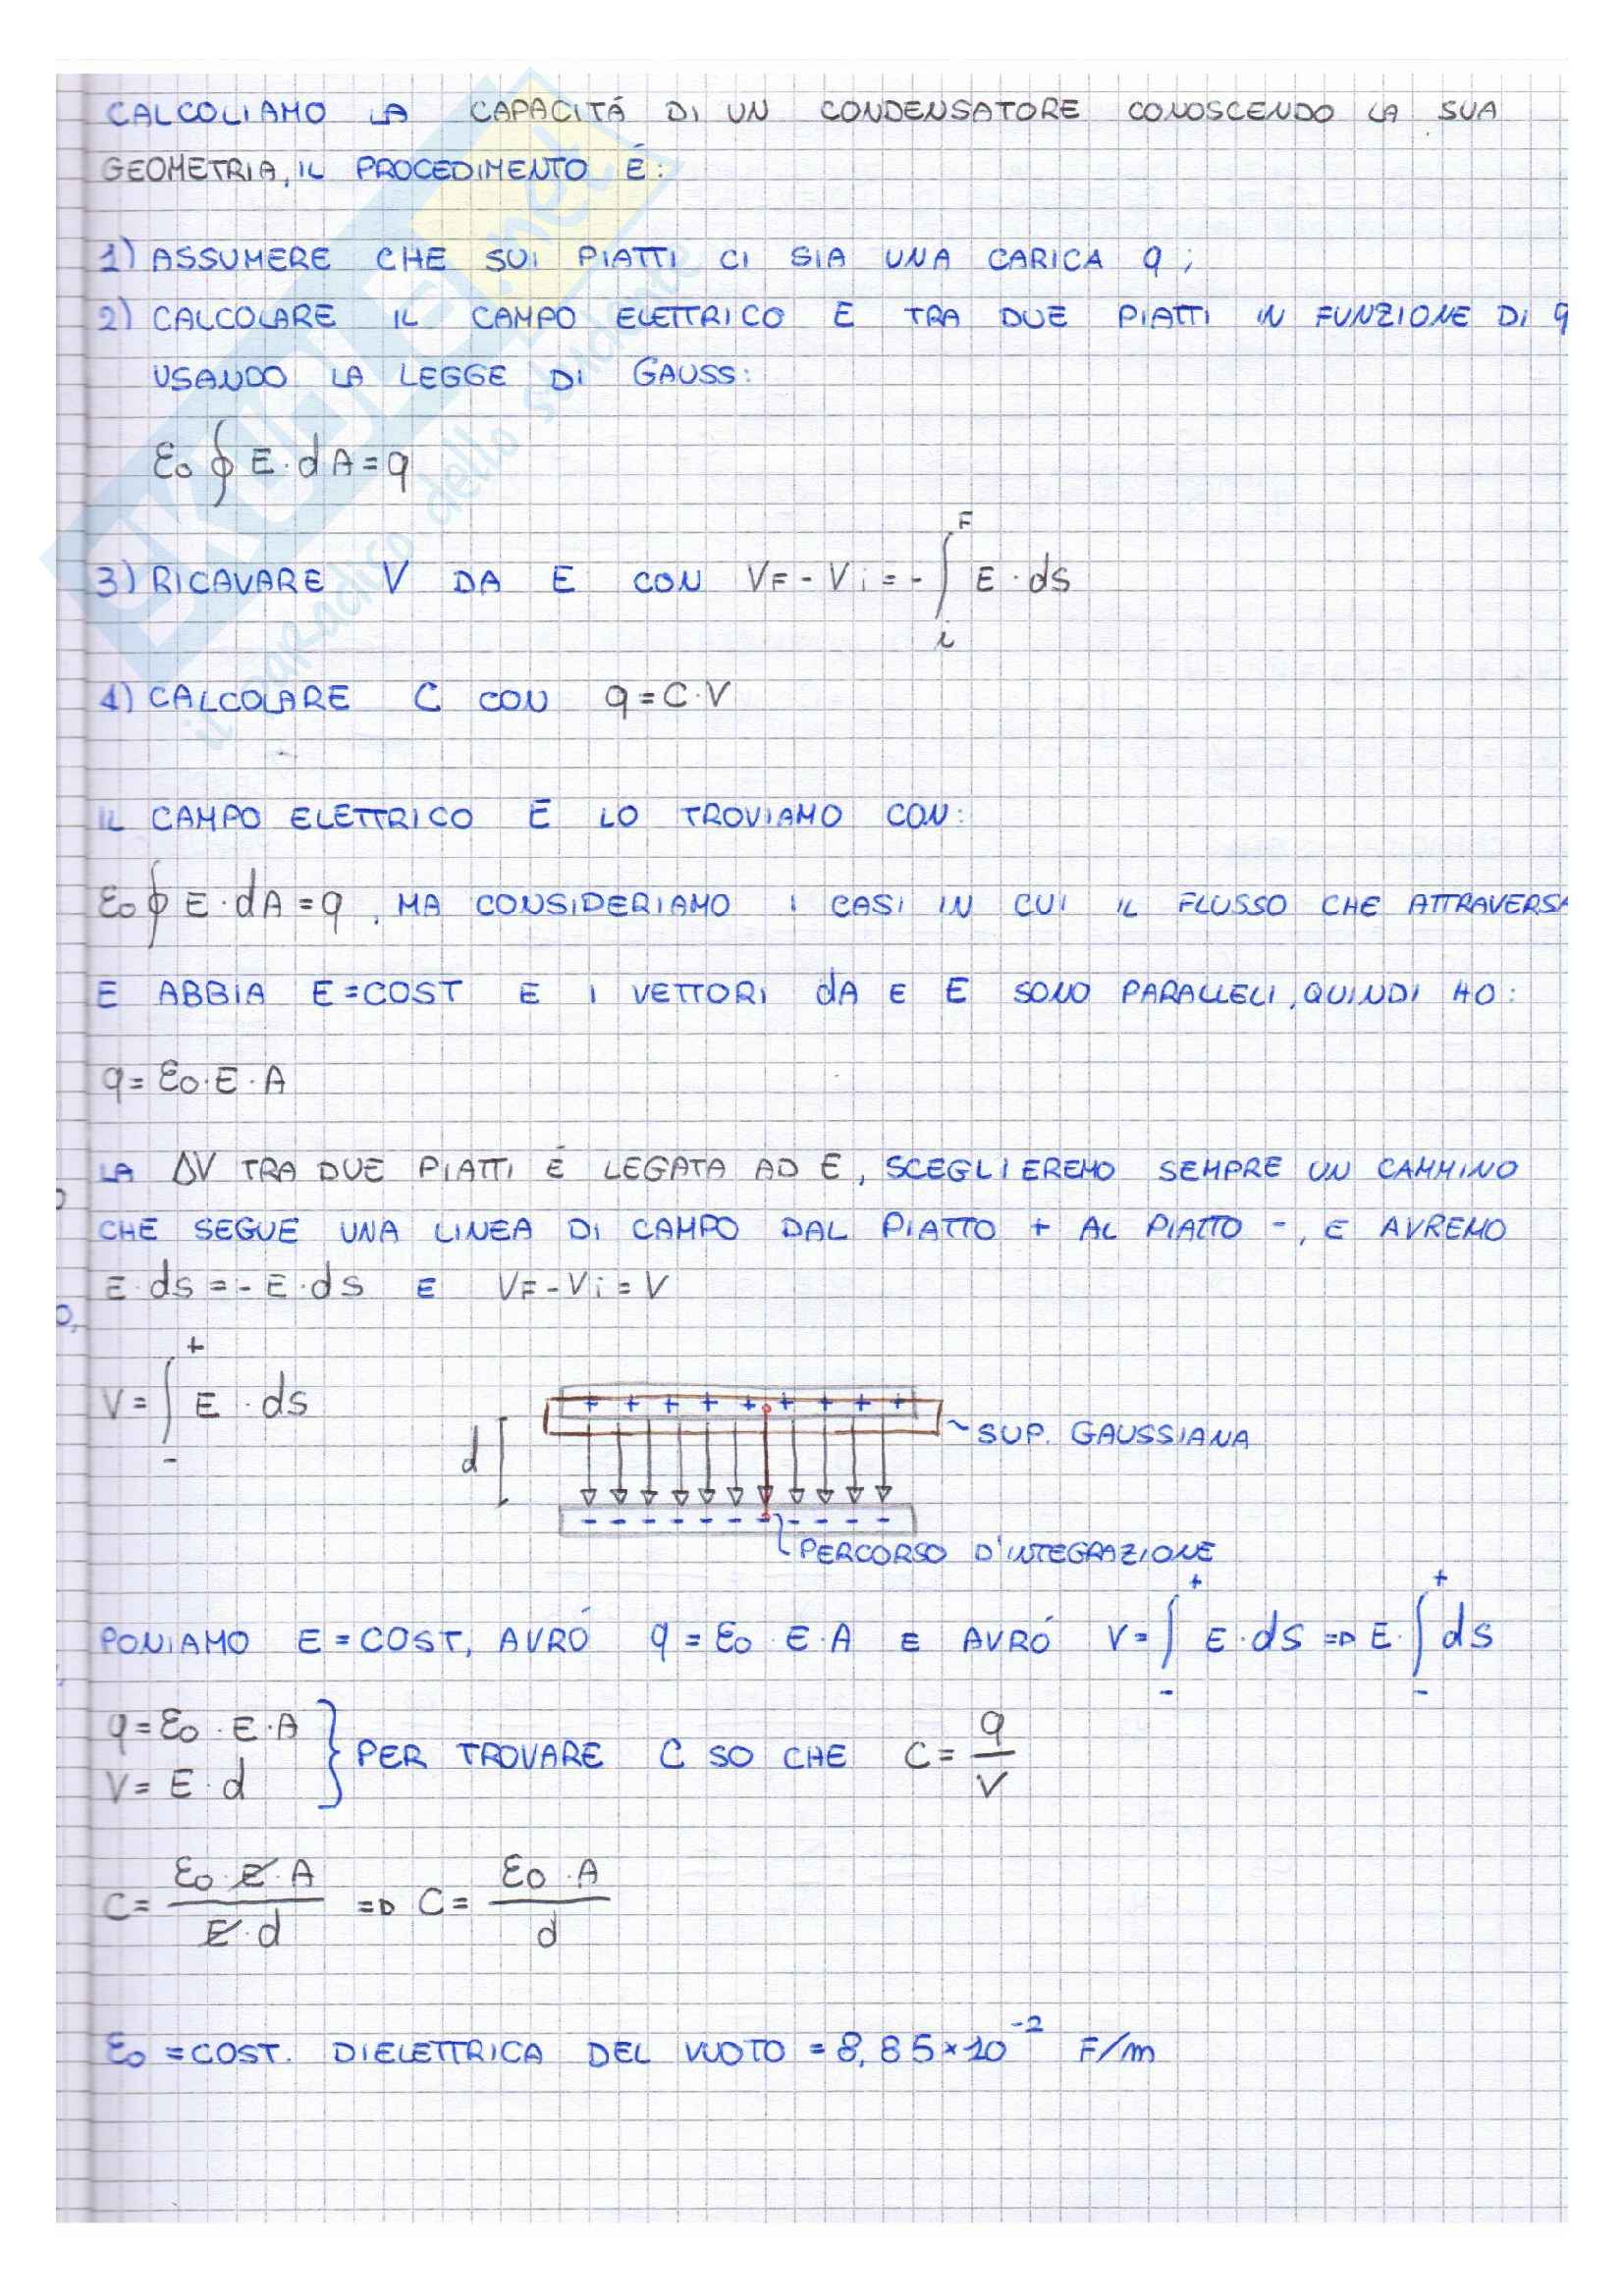 CALCOLIAMO LA CAPACITÁ DI UN CONDENSATORE CONOSCENDO LA SUA
GEOMETRIA, IL PROCEDIMENTO É:
1) ASSUMERE CHE SUI PIATTI CI SIA UNA CARICA q;
2) CALCOLARE IL CAMPO ELETTRICO E TRA DUE PIATTI IN FUNZIONE DI q
USANDO LA LEGGE DI GAUSS:
ε0 ∮ E · dA = q
3) RICAVARE V DA E CON VF - Vi = - ∫ E · ds
F
i
4) CALCOLARE C CON q = C · V
IL CAMPO ELETTRICO E LO TROVIAMO CON:
ε0 ∮ E · dA = q, MA CONSIDERIAMO I CASI IN CUI IL FLUSSO CHE ATTRAVERSA
E ABBIA E = COST E I VETTORI dA E E SONO PARALLELI, QUINDI HO:
q = ε0 · E · A
LA ΔV TRA DUE PIATTI É LEGATA AD E, SCEGLIEREMO SEMPRE UN CAMMINO
CHE SEGUE UNA LINEA DI CAMPO DAL PIATTO + AL PIATTO -, E AVREMO
E · ds = - E · ds E VF - Vi = V
+
V = ∫ E · ds
-
+ + + + + + + + +
SUP. GAUSSIANA
d
- - - - - - - - - - -
PERCORSO D'INTEGRAZIONE
+ +
PONIAMO E = COST, AVRÓ q = ε0 · E · A E AVRÓ V = ∫ E · ds => E · ∫ ds
- -
q = ε0 · E · A
V = E · d
} PER TROVARE C SO CHE C = q / V
C = ε0 · E · A / E · d => C = ε0 · A / d
ε0 = COST. DIELETTRICA DEL VUOTO = 8,85 × 10^-2 F/m
SKUOLA.net
il paradiso dello studente